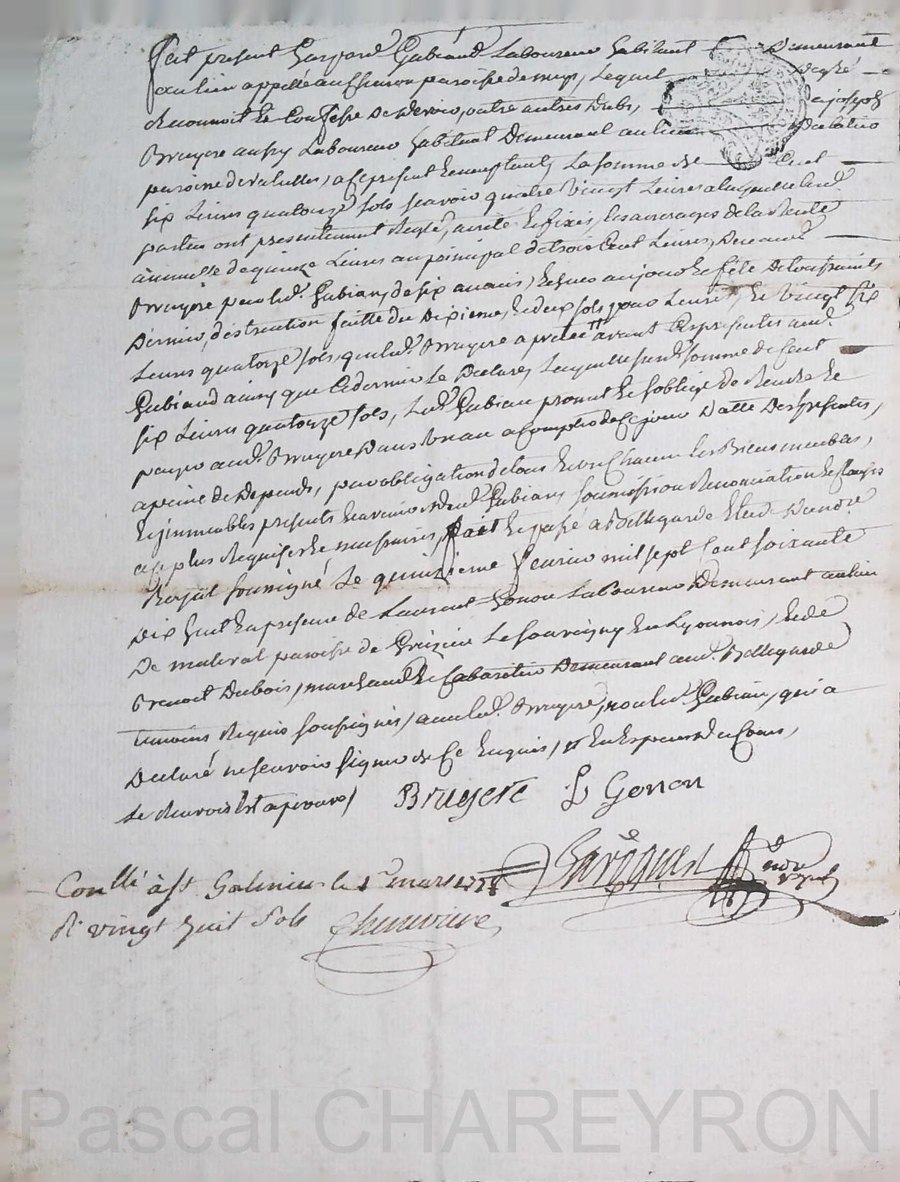 fait présent Gaspard Gubiand Laboureur habitant Demeurant
au lieu appellé au paroisse de Lequel de gré
Reconnoit et Confesse Devoir, outre autres Dubs, a joseph
Bruyere aussy Laboureur habitant Demeurant au lieu
paroisse de acceptant La somme de Cent
six Livres quatorze sols scavoir quatre vingt Livres a laquelle lesd.
parties ont présentement Reglé, arreté et fixés, les arrerages de la Rente
annuelle de quinze Livres au principal de trois Cent Livres, Deue aud.
Bruyere par led. Gubian, de six années, echues au jour et fête De toussaints
Dernier, distraction faitte du Dixieme, et deux sols pour Livre, et vingt six
Livres quatorze sols, que led. Bruyere a pretté avant Ces presentes aud.
Gubiand ainsy que Ce dernier Le Declare, Laquelle susd. somme de Cent
six Livres quatorze sols, Led. Gubian promet et s'oblige de Rendre et
payer aud. Bruyere Dans un an a Compter de Ce jour Datte Des presentes,
a peine de Depends, par obligation de tous et un Chacun les Biens meubles,
et immeubles presents et avenir dud. Gubian, soumission Renonciation et Clauses
a ce plus Requises et necessaires, fait et passé a Bellegarde Etude Du notre
Royal soussigné Le quinzieme fevrier mil sept Cent soixante
Dix huit En presence de Laurent Gonon Laboureur Demeurant au lieu
De maleval paroisse de Grizieu Le souvigny En Lyonnois, et de
Benoit Dubois, marchand et Cabaretier Demeurant aud. Bellegarde
temoins Requis soussignés, avec led. Bruyere, non led. Gubian, qui a
Declaré ne scavoir signer de Ce Enquis, et En Especes De Cours,
Le Renvois Est aprouvé,
Bruyere L Gonon
Conllé à st Galmier le 1er mars 1778
R. vingt huit sols
Pascal CHAREYRON